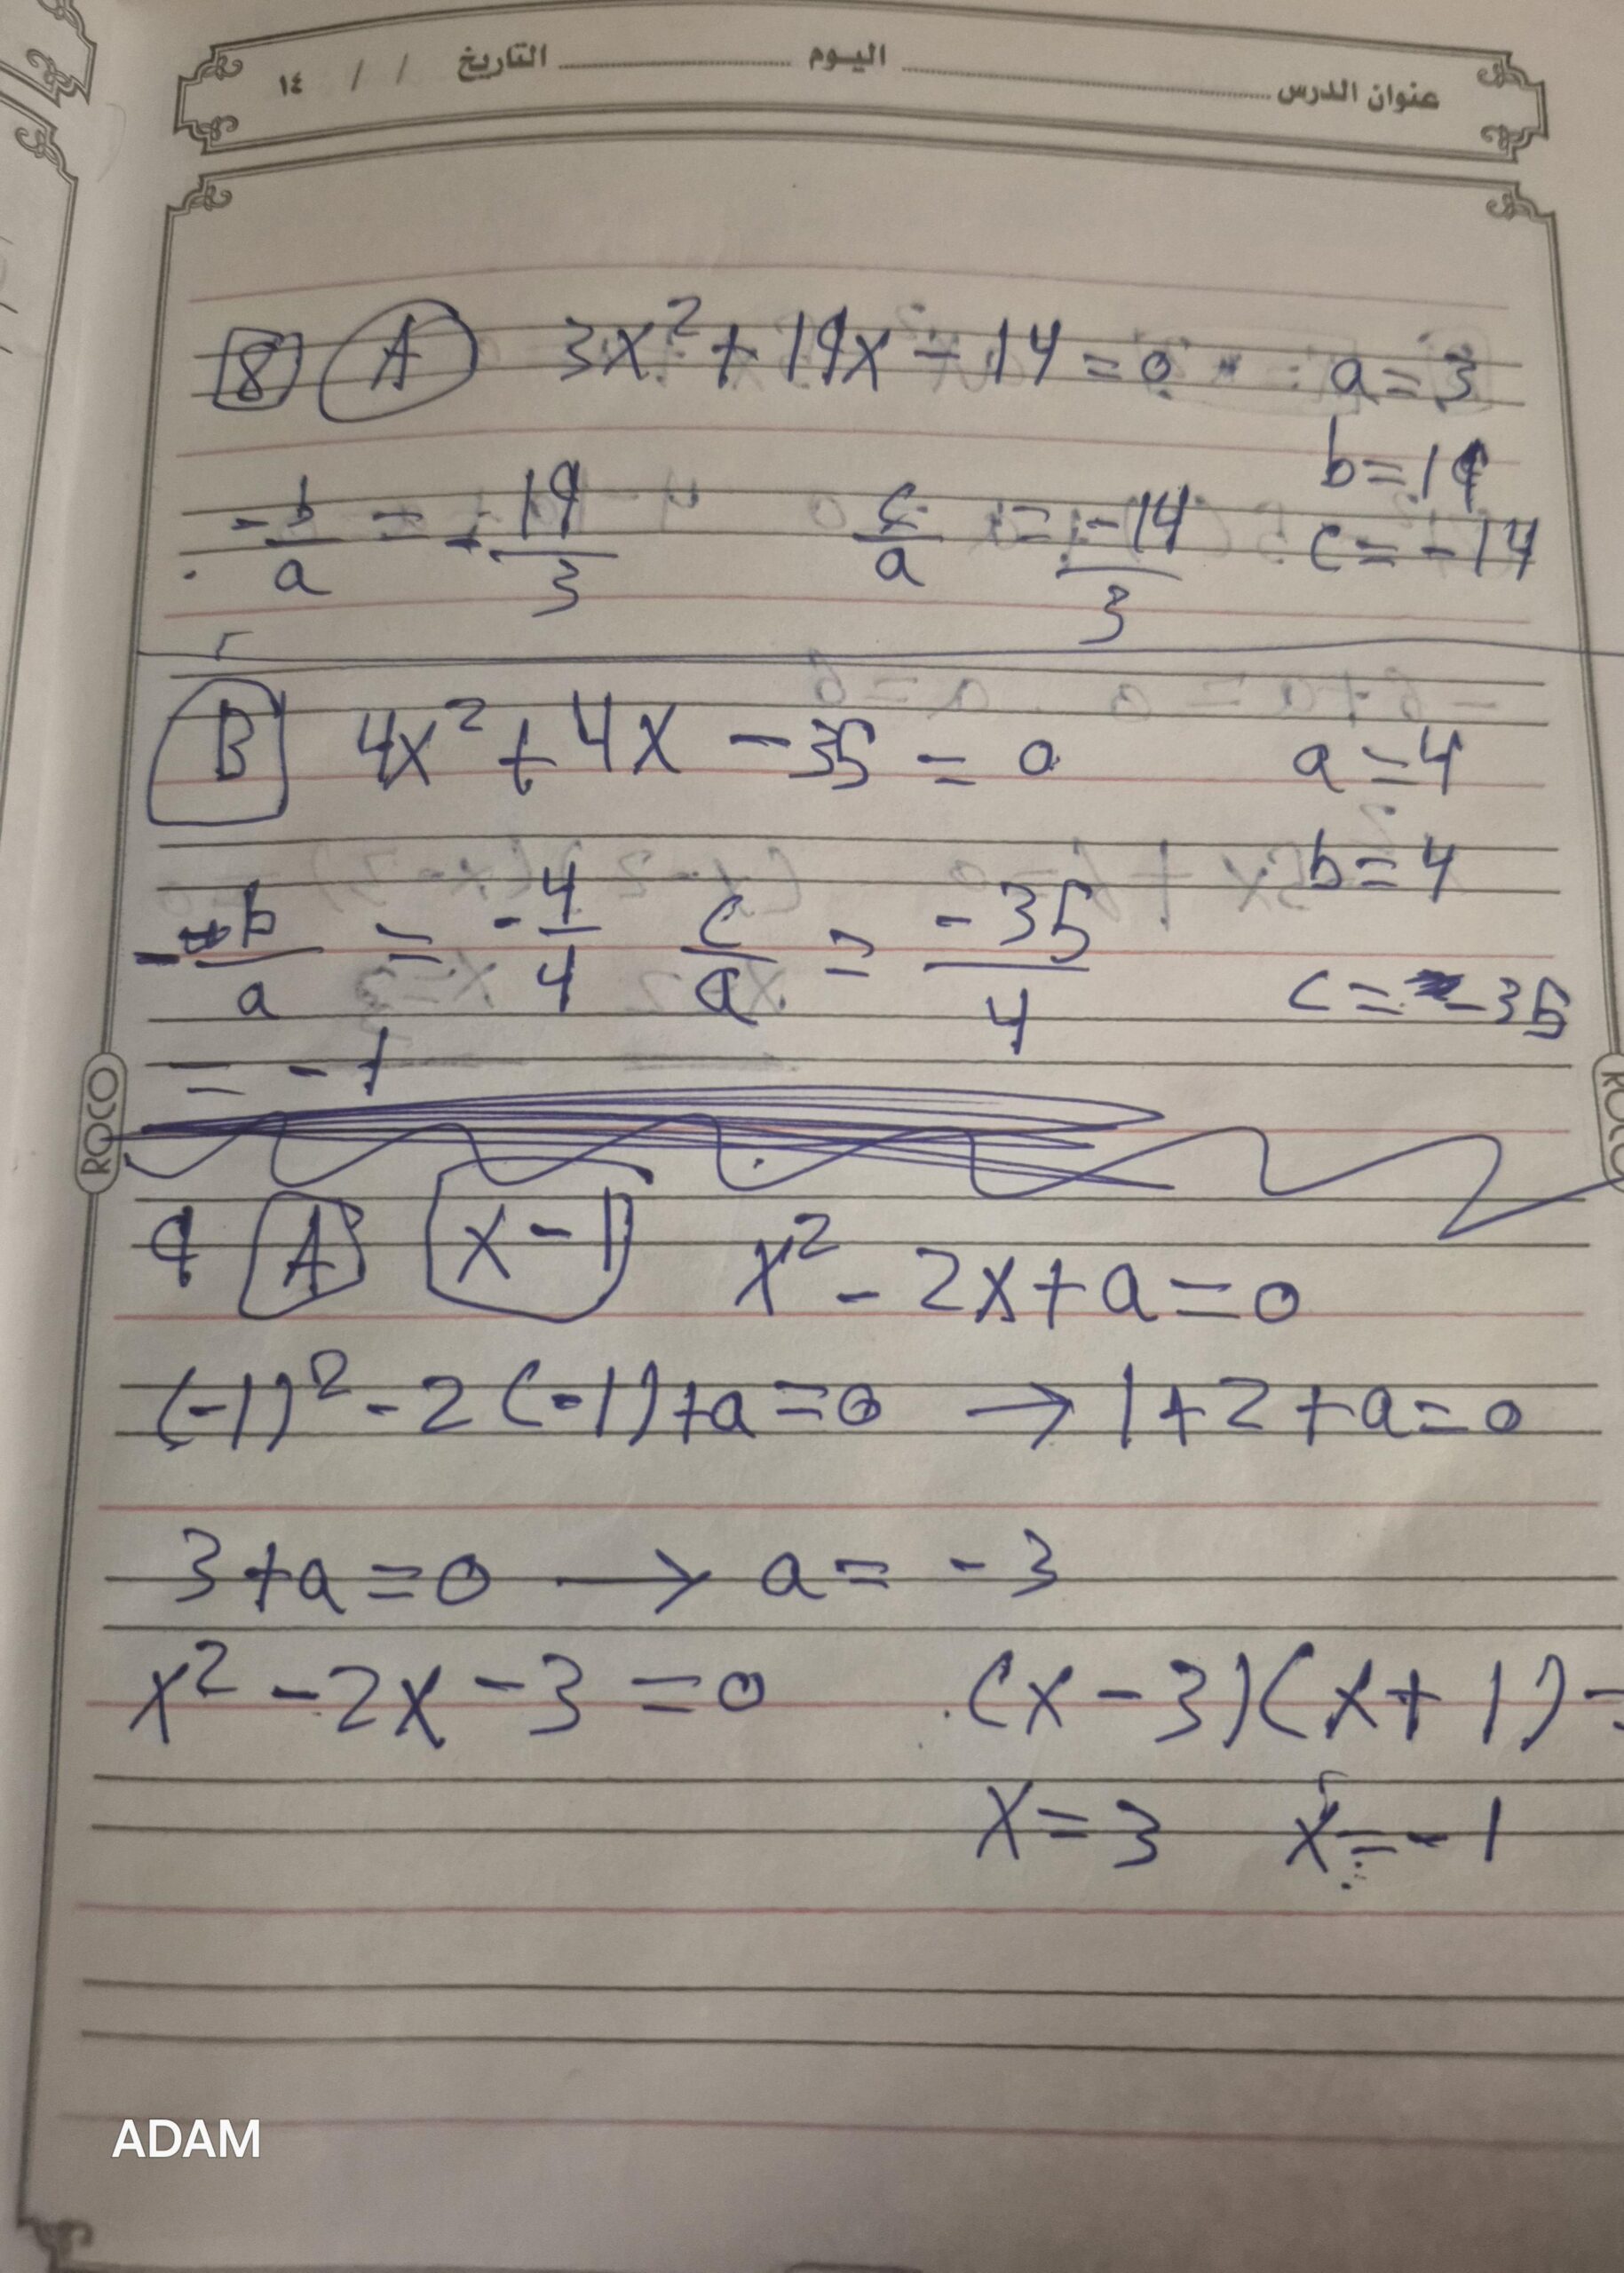 عنوان الدرس اليوم التاريخ / / ١٤
8 A 3x² + 19x - 14 = 0 a = 3
b = 19
-b/a = -19/3 c/a = -14/3 c = -14
B 4x² + 4x - 35 = 0 a = 4
b = 4
-b/a = -4/4 c/a = -35/4 c = -35
= -1
ROCO
9 A x - 1 x² - 2x + a = 0
(-1)² - 2(-1) + a = 0 → 1 + 2 + a = 0
3 + a = 0 → a = -3
x² - 2x - 3 = 0 (x - 3)(x + 1) =
x = 3 x = -1
ADAM